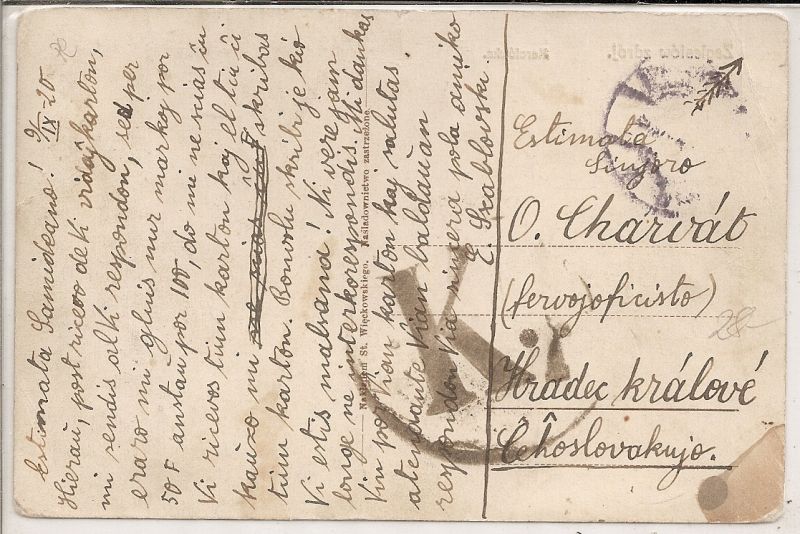 9/IX 20
Estimata Samideano!
Hieraŭ, post ricevo de Vi vidaj kartoj,
mi sendis al Vi respondon, sed per
eraro mi gluis nur markoj por
50 F anstaŭ por 100, do mi ne sias ĉu
Vi ricevos tiun karton kaj el tiu ĉi
kaŭzo mi skribas
tiun karton. Bonvolu skribi je kio
Vi estis malsana! Ni vere jam
longe ne interkorespondis. Mi dankas
Vin por Vian karton kaj salutas
atendante Vian baldaŭan
respondon Via sincera pola amiko
E. Szablovski
Nakładem St. Więckowskiego. Naśladownictwo zastrzeżone.
Estimata
Sinjoro
O. Charvát
(fervojoficisto)
Hradec králové
Ĉeĥoslovakujo.
K.
28-